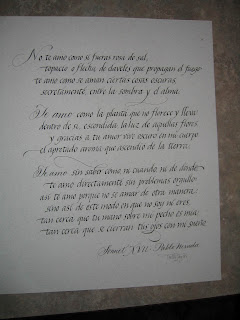 No te amo como si fueras rosa de sal,
topacio o flecha de claveles que propagan el fuego:
te amo como se aman ciertas cosas oscuras,
secretamente, entre la sombra y el alma.
Te amo como la planta que no florece y lleva
dentro de sí, escondida, la luz de aquellas flores
y gracias a tu amor vive oscuro en mi cuerpo
el apretado aroma que ascendió de la tierra.
Te amo sin saber como, ni cuando, ni de dónde,
te amo directamente sin problemas ni orgullo:
así te amo porque no sé amar de otra manera,
sino así de este modo en que no soy ni eres,
tan cerca que tu mano sobre mi pecho es mía,
tan cerca que se cierran tus ojos con mi sueño.
Soneto XVII - Pablo Neruda